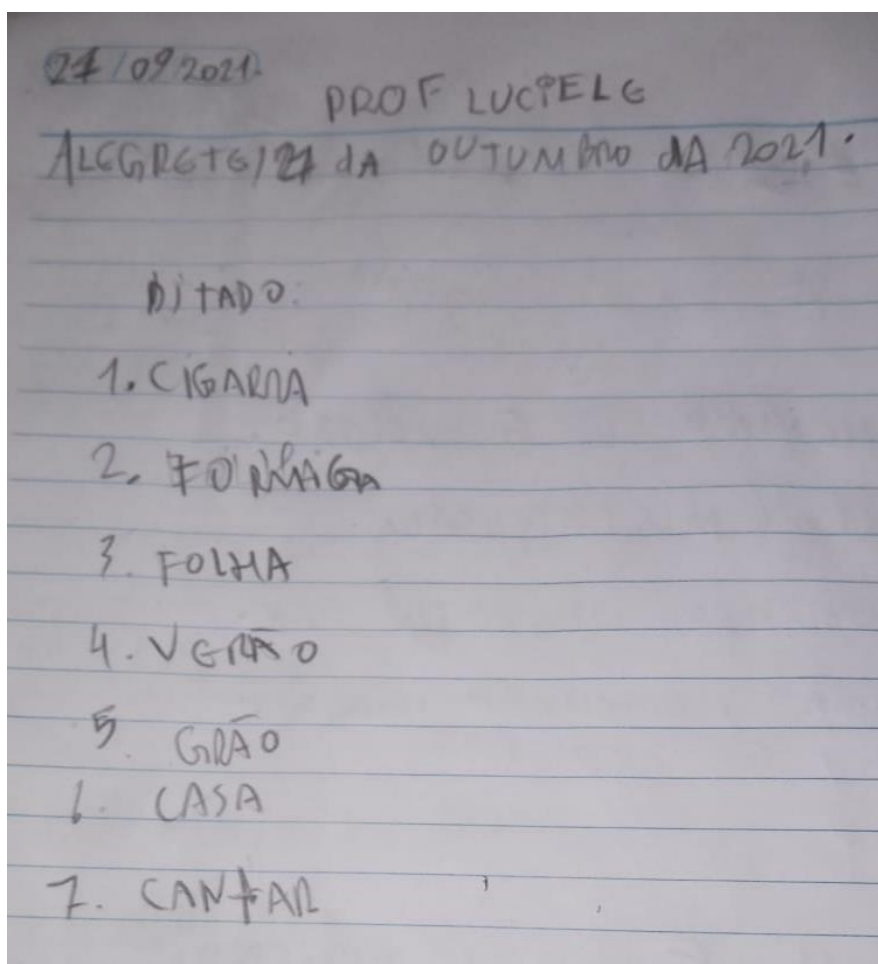 /09/2021.
PROF LUCIELE
ALEGRETE, dA OUTUMBRO dA 2021.
DITADO.
1. CIGARRA
2.
3. FOLHA
4. VERÃO
5. GRÃO
6. CASA
7. CANTAR